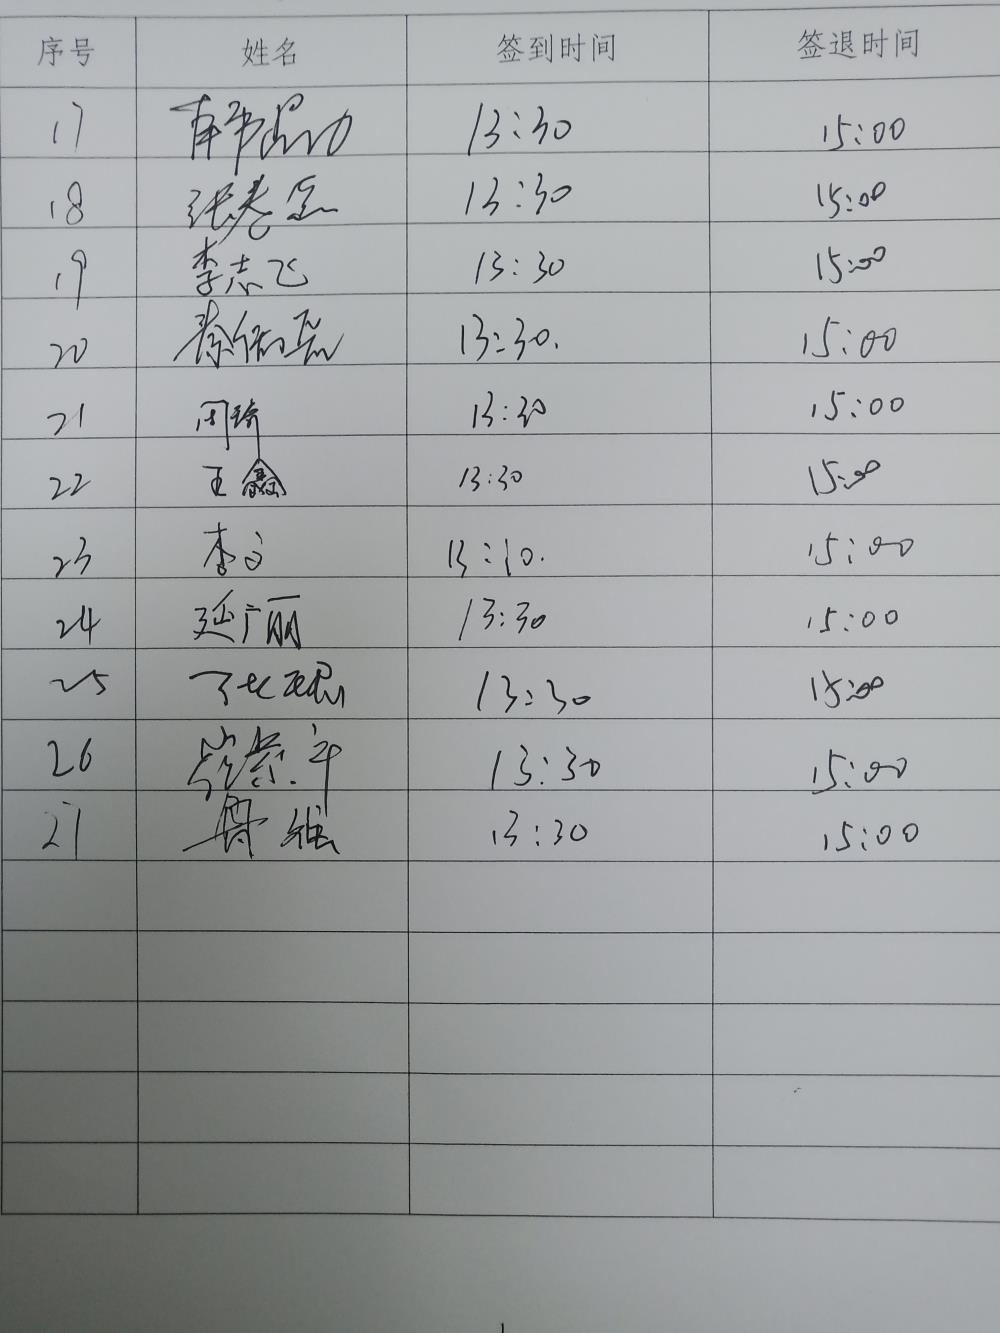 序号 姓名 签到时间 签退时间
17 13:30 15:00
18 13:30 15:00
19 李志飞 13:30 15:00
20 13:30. 15:00
21 周琦 13:30 15:00
22 王鑫 13:30 15:00
23 李文 13:10. 15:00
24 延广丽 13:30 15:00
25 13:30 15:00
26 13:30 15:00
27 13:30 15:00